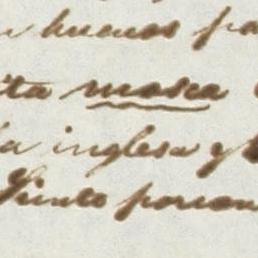 buenos pa
ita mosca
la inglesa y
Siento porcon